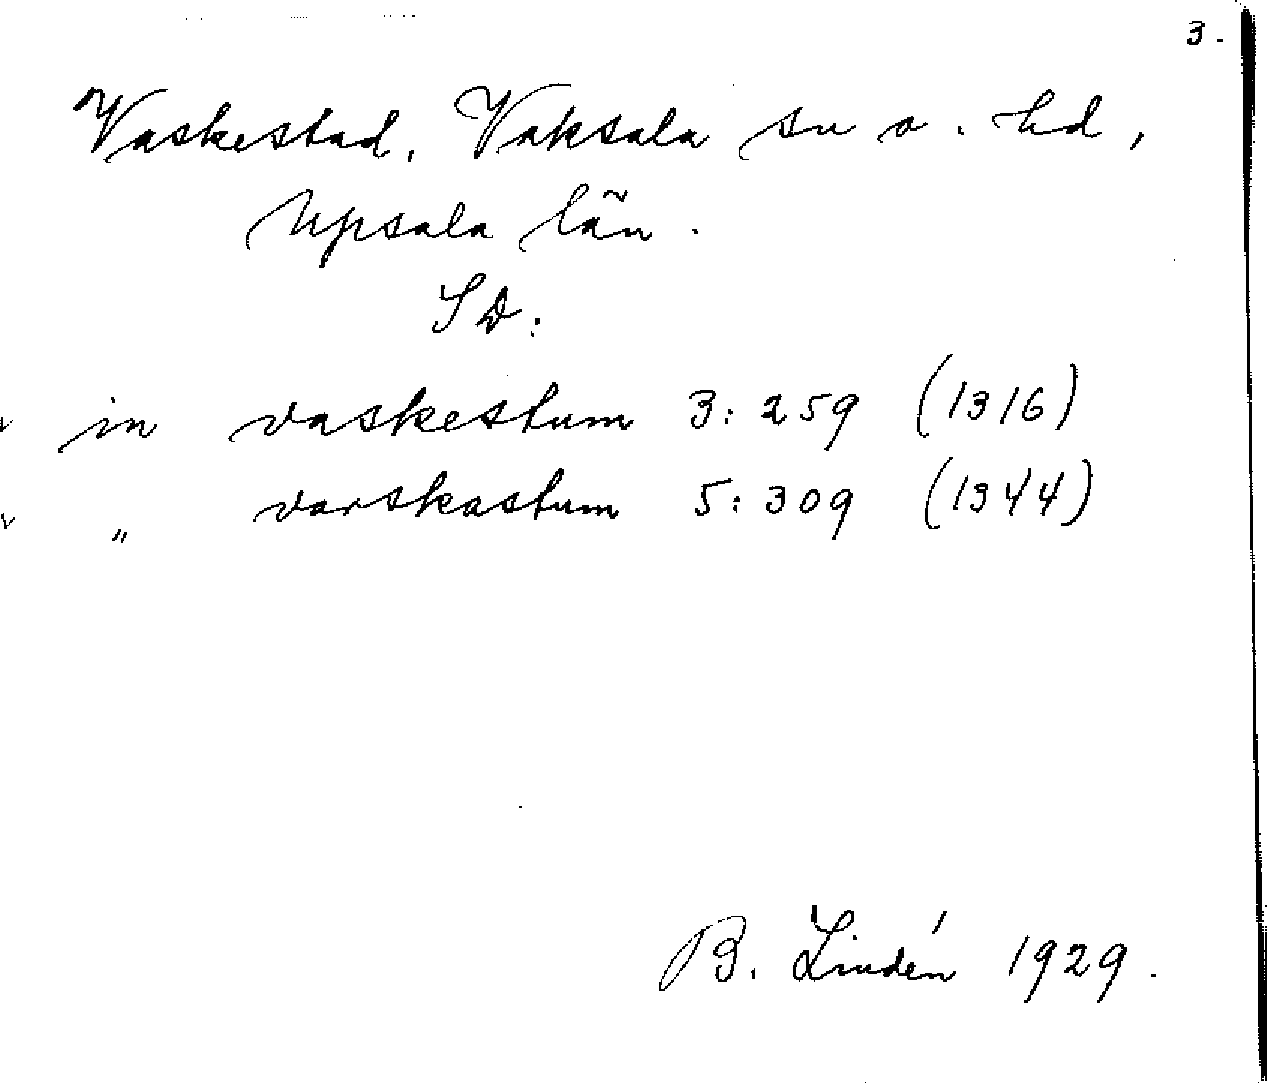 3.
Vaskestad, Vaksala sn o. hd,
Upsala län.
SD:
v in vaskestum 3: 259 (1316)
v „ varskastum 5: 309 (1344)
B. Lindén 1929.